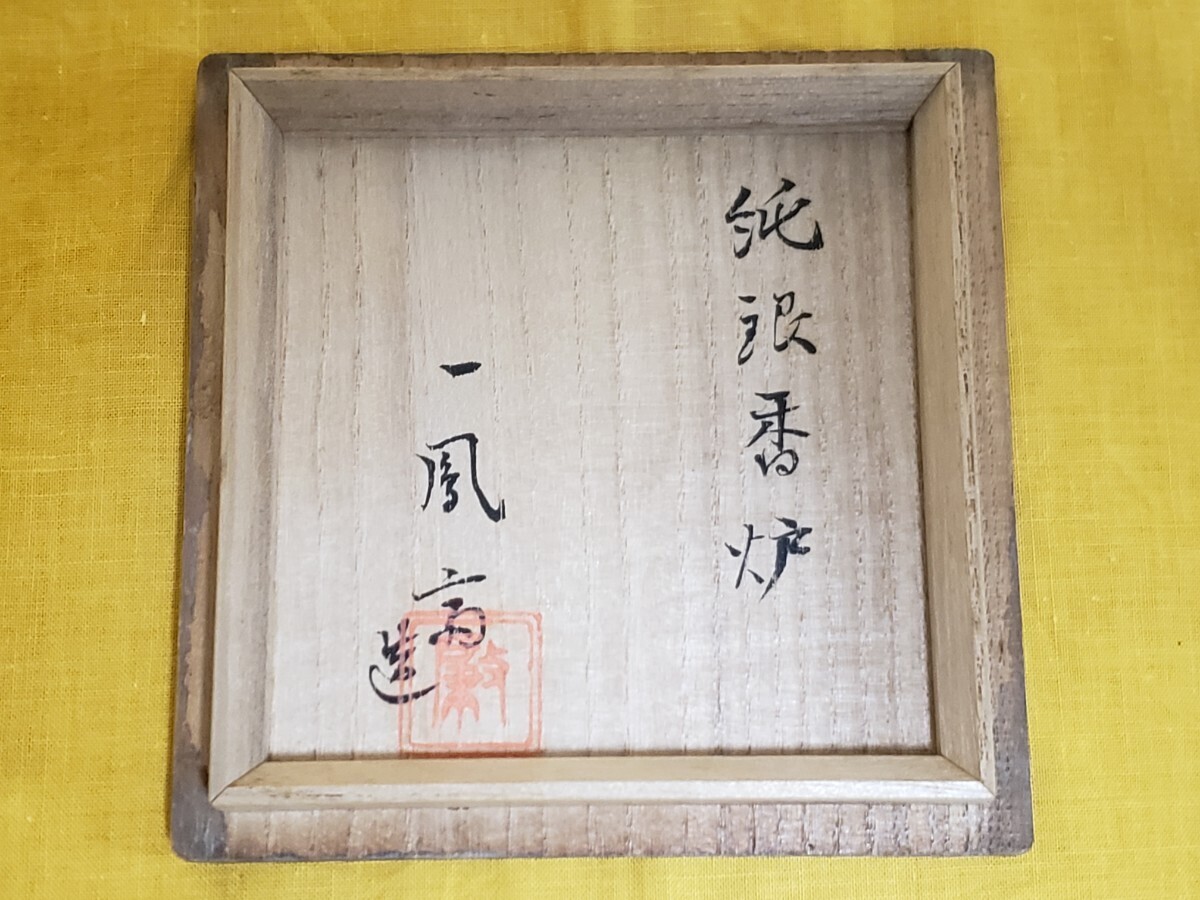 純銀香炉
一鳳斎
造